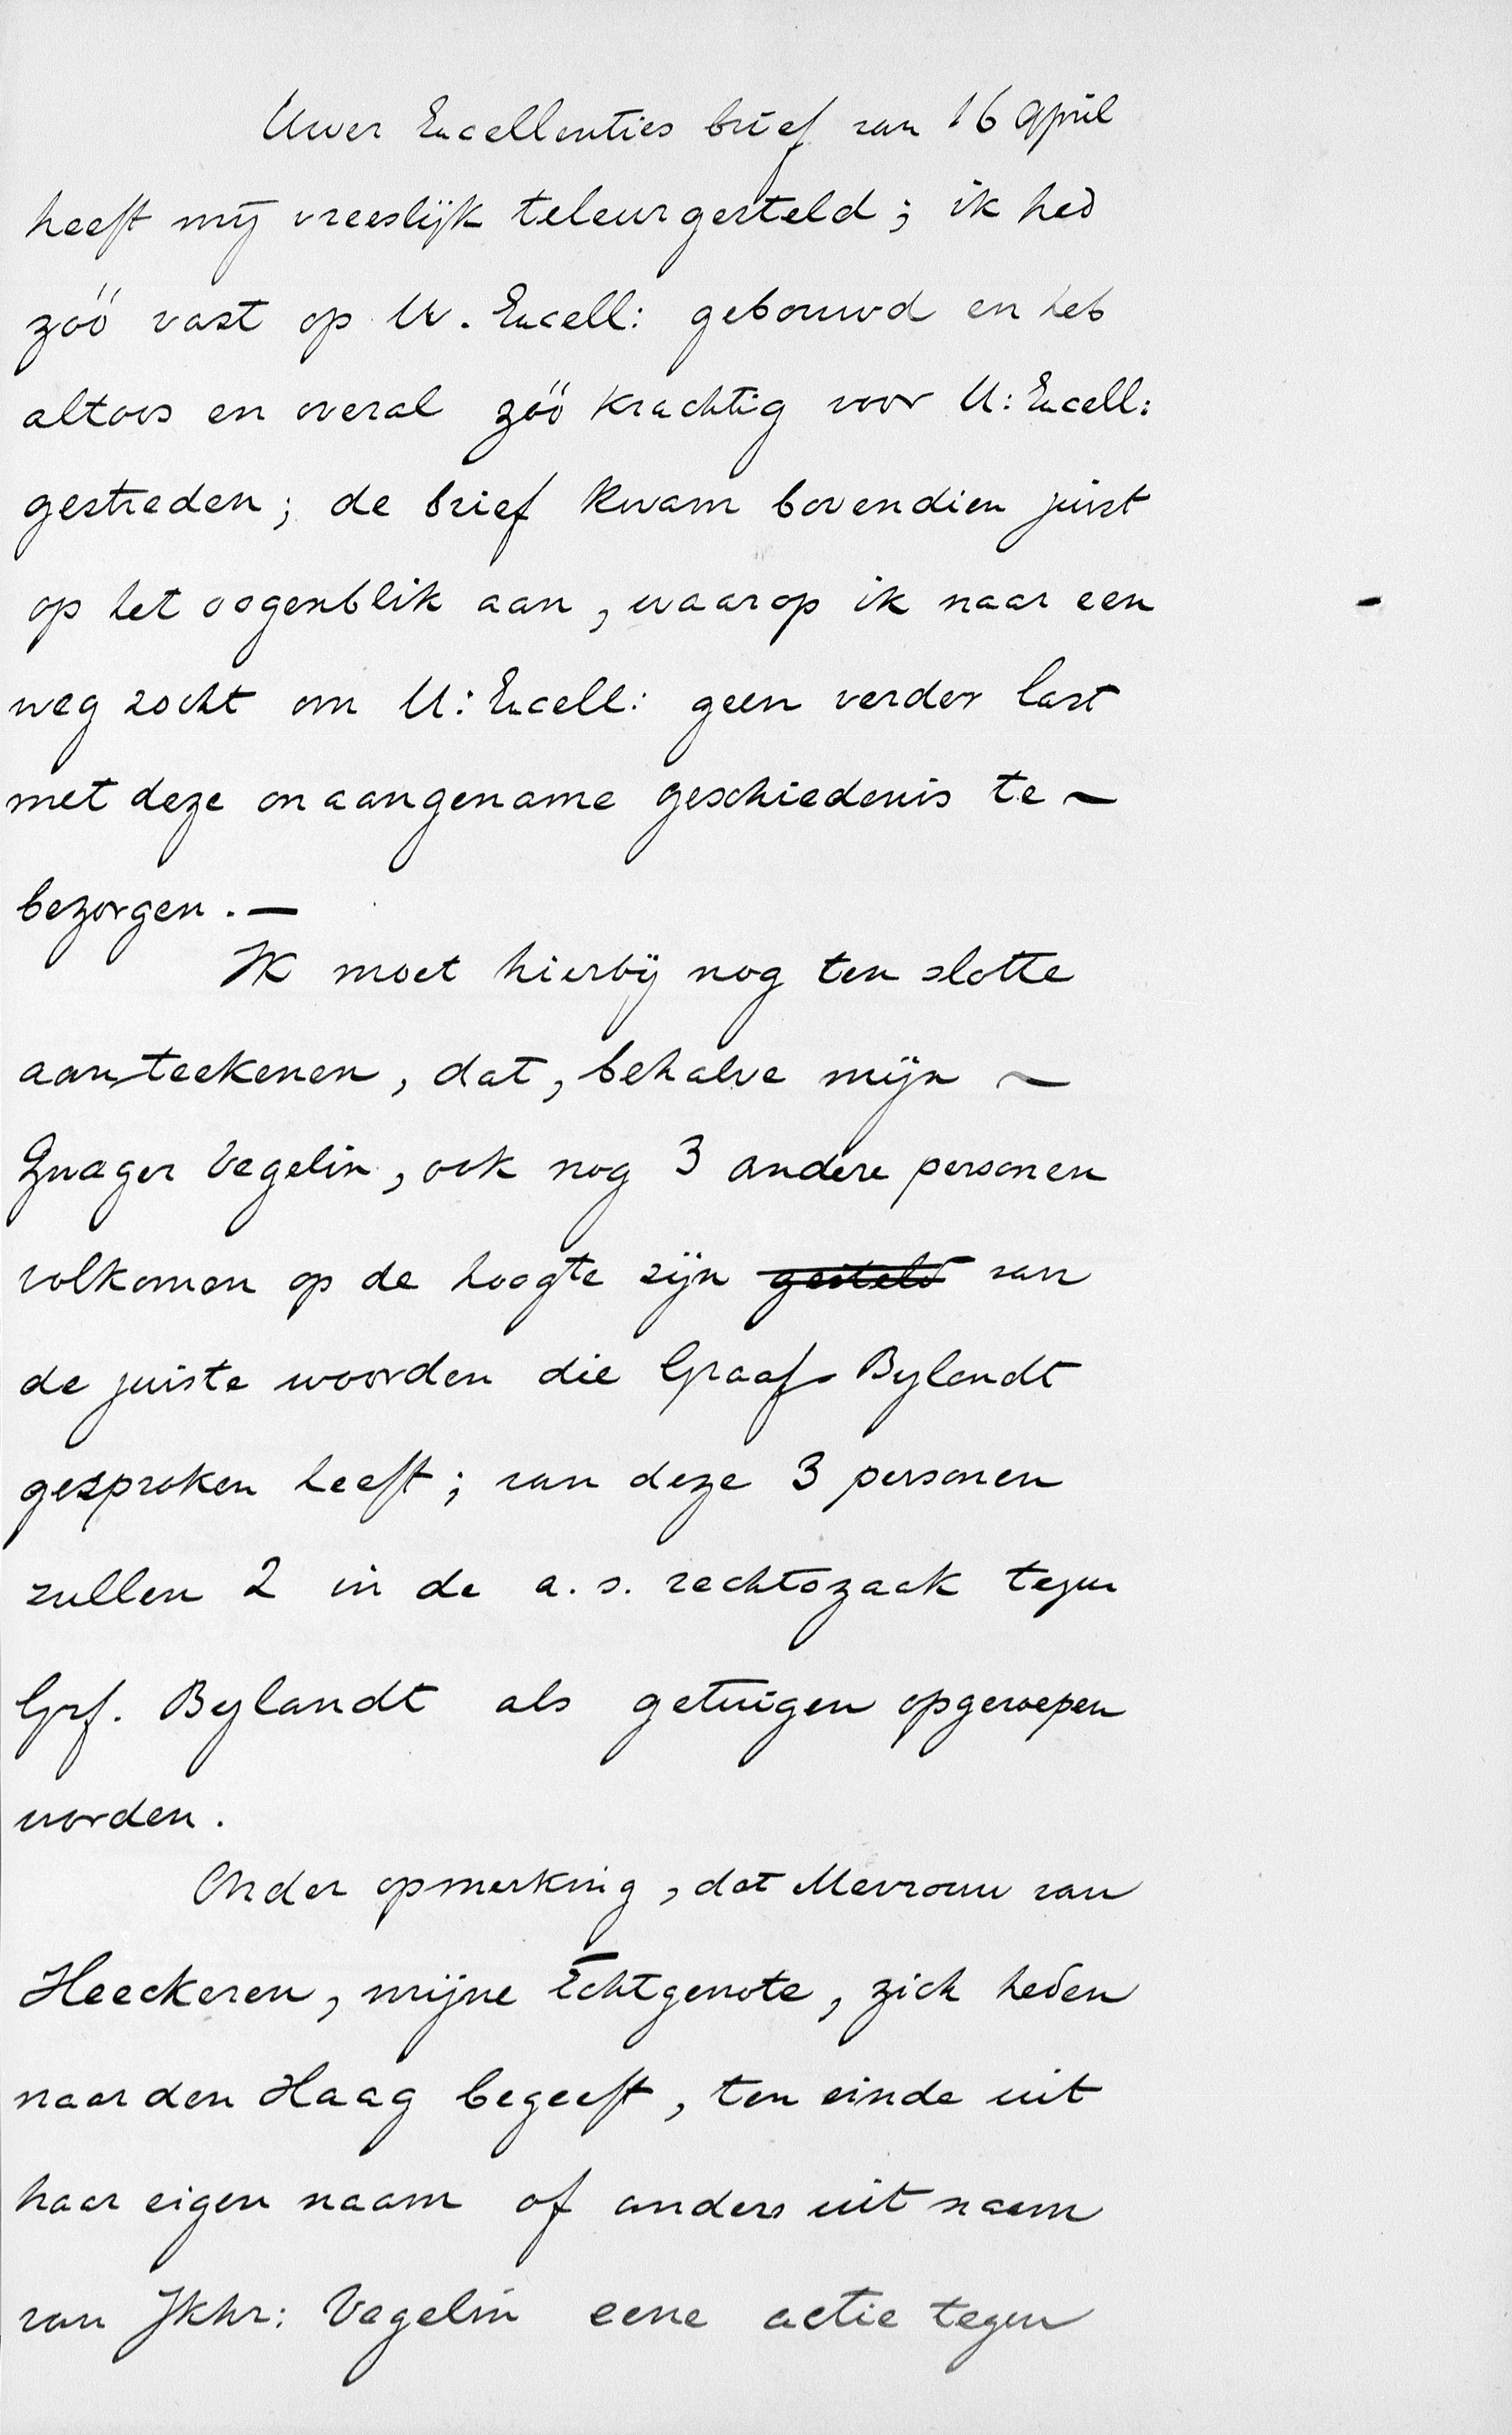 Uwer Excellenties brief van 16 April
heeft mij vreeslijk teleurgesteld; ik heb
zóó vast op U. Excell: gebouwd en heb
altoos en overal zóó krachtig voor U: Excell:
gestreden; de brief kwam bovendien juist
op het oogenblik aan, waarop ik naar een
weg zocht om U: Excell: geen verder last
met deze onaangename geschiedenis te ~
bezorgen. —
Ik moet hierbij nog ten slotte
aanteekenen, dat, behalve mijn ~
Zwager Vegelin, ook nog 3 andere personen
volkomen op de hoogte zijn gesteld van
de juiste woorden die Graaf Bylandt
gesproken heeft; van deze 3 personen
zullen 2 in de a.s. rechtszaak tegen
Grf. Bylandt als getuigen opgeroepen
worden.
Onder opmerking, dat Mevrouw van
Heeckeren, mijne Echtgenote, zich heden
naar den Haag begeeft, ten einde uit
haar eigen naam of anders uit naam
van Jkhr: Vegelin eene actie tegen